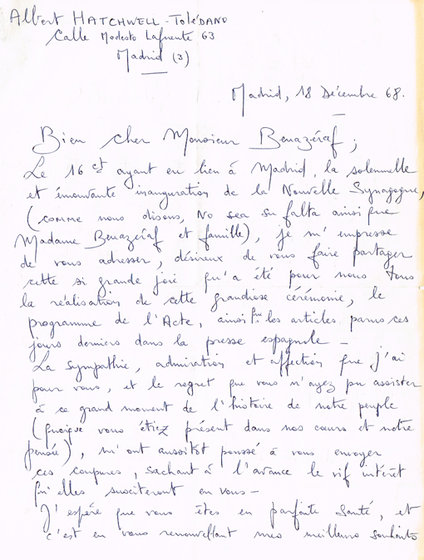 Albert HATCHWELL-TOLÉDANO
Calle Modesto Lafuente 63
Madrid (3)
Madrid, 18 Décembre 68.
Bien cher Monsieur Benazéraf;
Le 16 ct ayant eu lieu à Madrid, la solennelle
et émouvante inauguration de la Nouvelle Synagogue,
(comme nous disons, No sea su falta ainsi que
Madame Benazéraf et famille), je m'empresse
de vous adresser, désireux de vous faire partager
cette si grande joie qu'a été pour nous tous
la réalisation de cette grandiose cérémonie, le
programme de l'Acte, ainsi que les articles parus ces
jours derniers dans la presse espagnole -
La Sympathie, admiration et affection que j'ai
pour vous, et le regret que vous n'ayez pu assister
à ce grand moment de l'histoire de notre peuple
(quoique vous étiez présent dans nos cœurs et notre
pensée), m'ont aussitôt poussé à vous envoyer
ces coupures, sachant à l'avance le vif intérêt
qu'elles susciteront en vous -
J'espère que vous êtes en parfaite Santé, et
c'est en vous renouvellant mes meilleurs souhaits